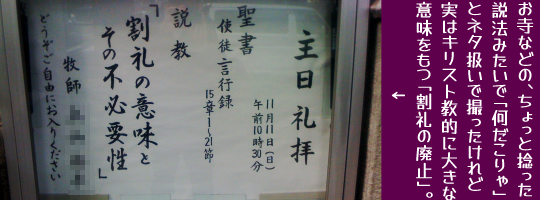 主日礼拝
11月11日(日)
午前10時30分
聖書
使徒言行録
15章1~21節
説教
「割礼の意味と
その不必要性」
牧師
どうぞご自由にお入りください
お寺などの、ちょっと捻った
説法みたいで「何だこりゃ」
とネタ扱いで撮ったけれど
実はキリスト教的に大きな
意味をもつ「割礼の廃止」。
←